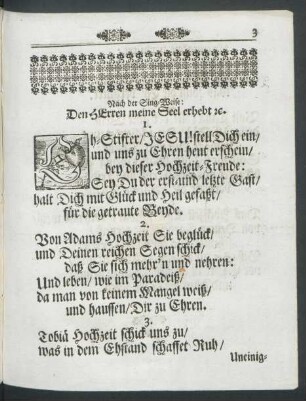 3
Nach der Sing-Weise:
Den HErren meine Seel erhebt ꝛc.
1.
Eh-Stifter/JESU! stell Dich ein/
und uns zu Ehren heut erschein/
bey dieser Hochzeit-Freude:
Sey Du der erst und letzte Gast/
halt Dich mit Glück und Heil gefaßt/
für die getraute Beyde.
2.
Von Adams Hochzeit Sie beglück/
und Deinen reichen Segen schick/
daß Sie sich mehr'n und nehren:
Und leben/ wie im Paradeiß/
da man von keinem Mangel weiß/
und haussen/ Dir zu Ehren.
3.
Tobiä Hochzeit schick uns zu/
was in dem Ehstand schaffet Ruh/
Uneinig-